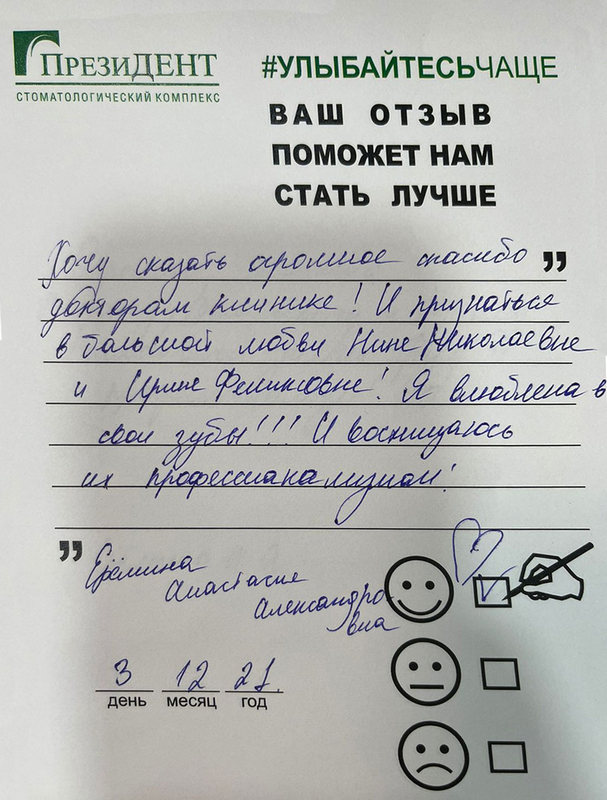 ПРЕЗИДЕНТ
СТОМАТОЛОГИЧЕСКИЙ КОМПЛЕКС
#УЛЫБАЙТЕСЬЧАЩЕ
ВАШ ОТЗЫВ
ПОМОЖЕТ НАМ
СТАТЬ ЛУЧШЕ
Хочу сказать огромное спасибо
докторам клинике! И признаться
в большой любви Нине Николаевне
и Ирине Феликсовне! Я влюблена в
свои зубы!!! И восхищаюсь
их профессианализмом!
Ерёмина
Анастасия
Александро-
вна
3 12 21.
день месяц год